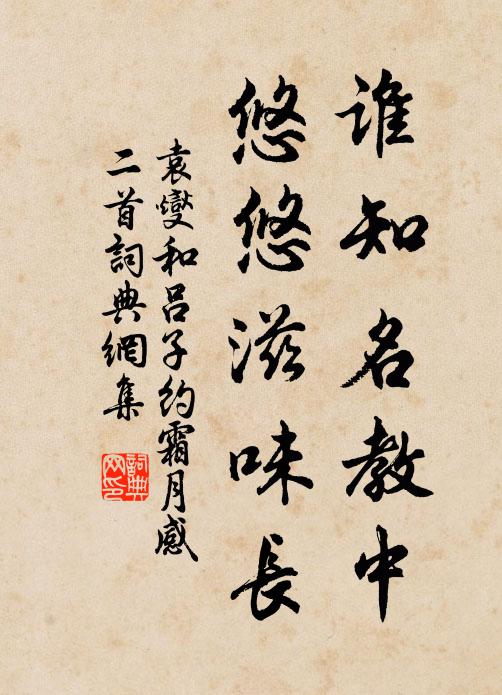 谁知名教中
悠悠滋味長
袁燮和吕子約霜月感
二首詞典網集
詞典
网印